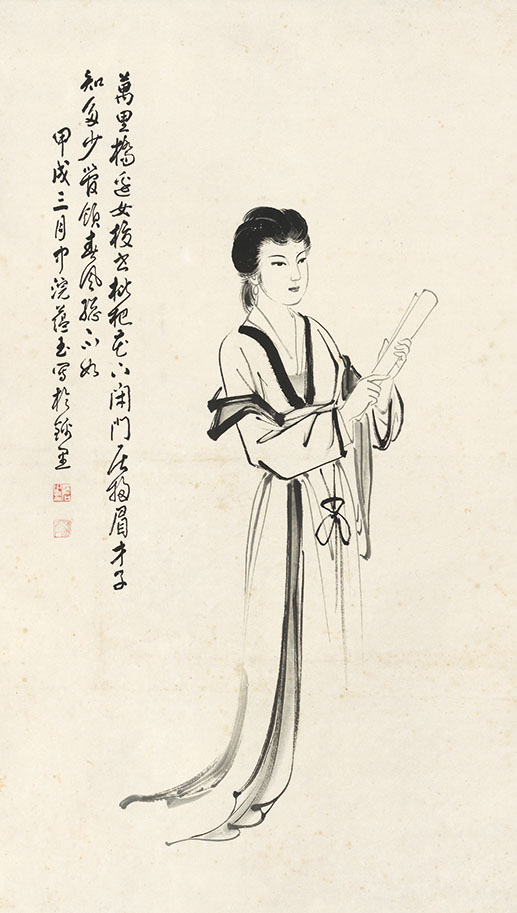 萬里橋邊女校書枇杷花下閉門居掃眉才子
知多少管領春風總不如
甲戌三月中浣蘊玉寫於錦里